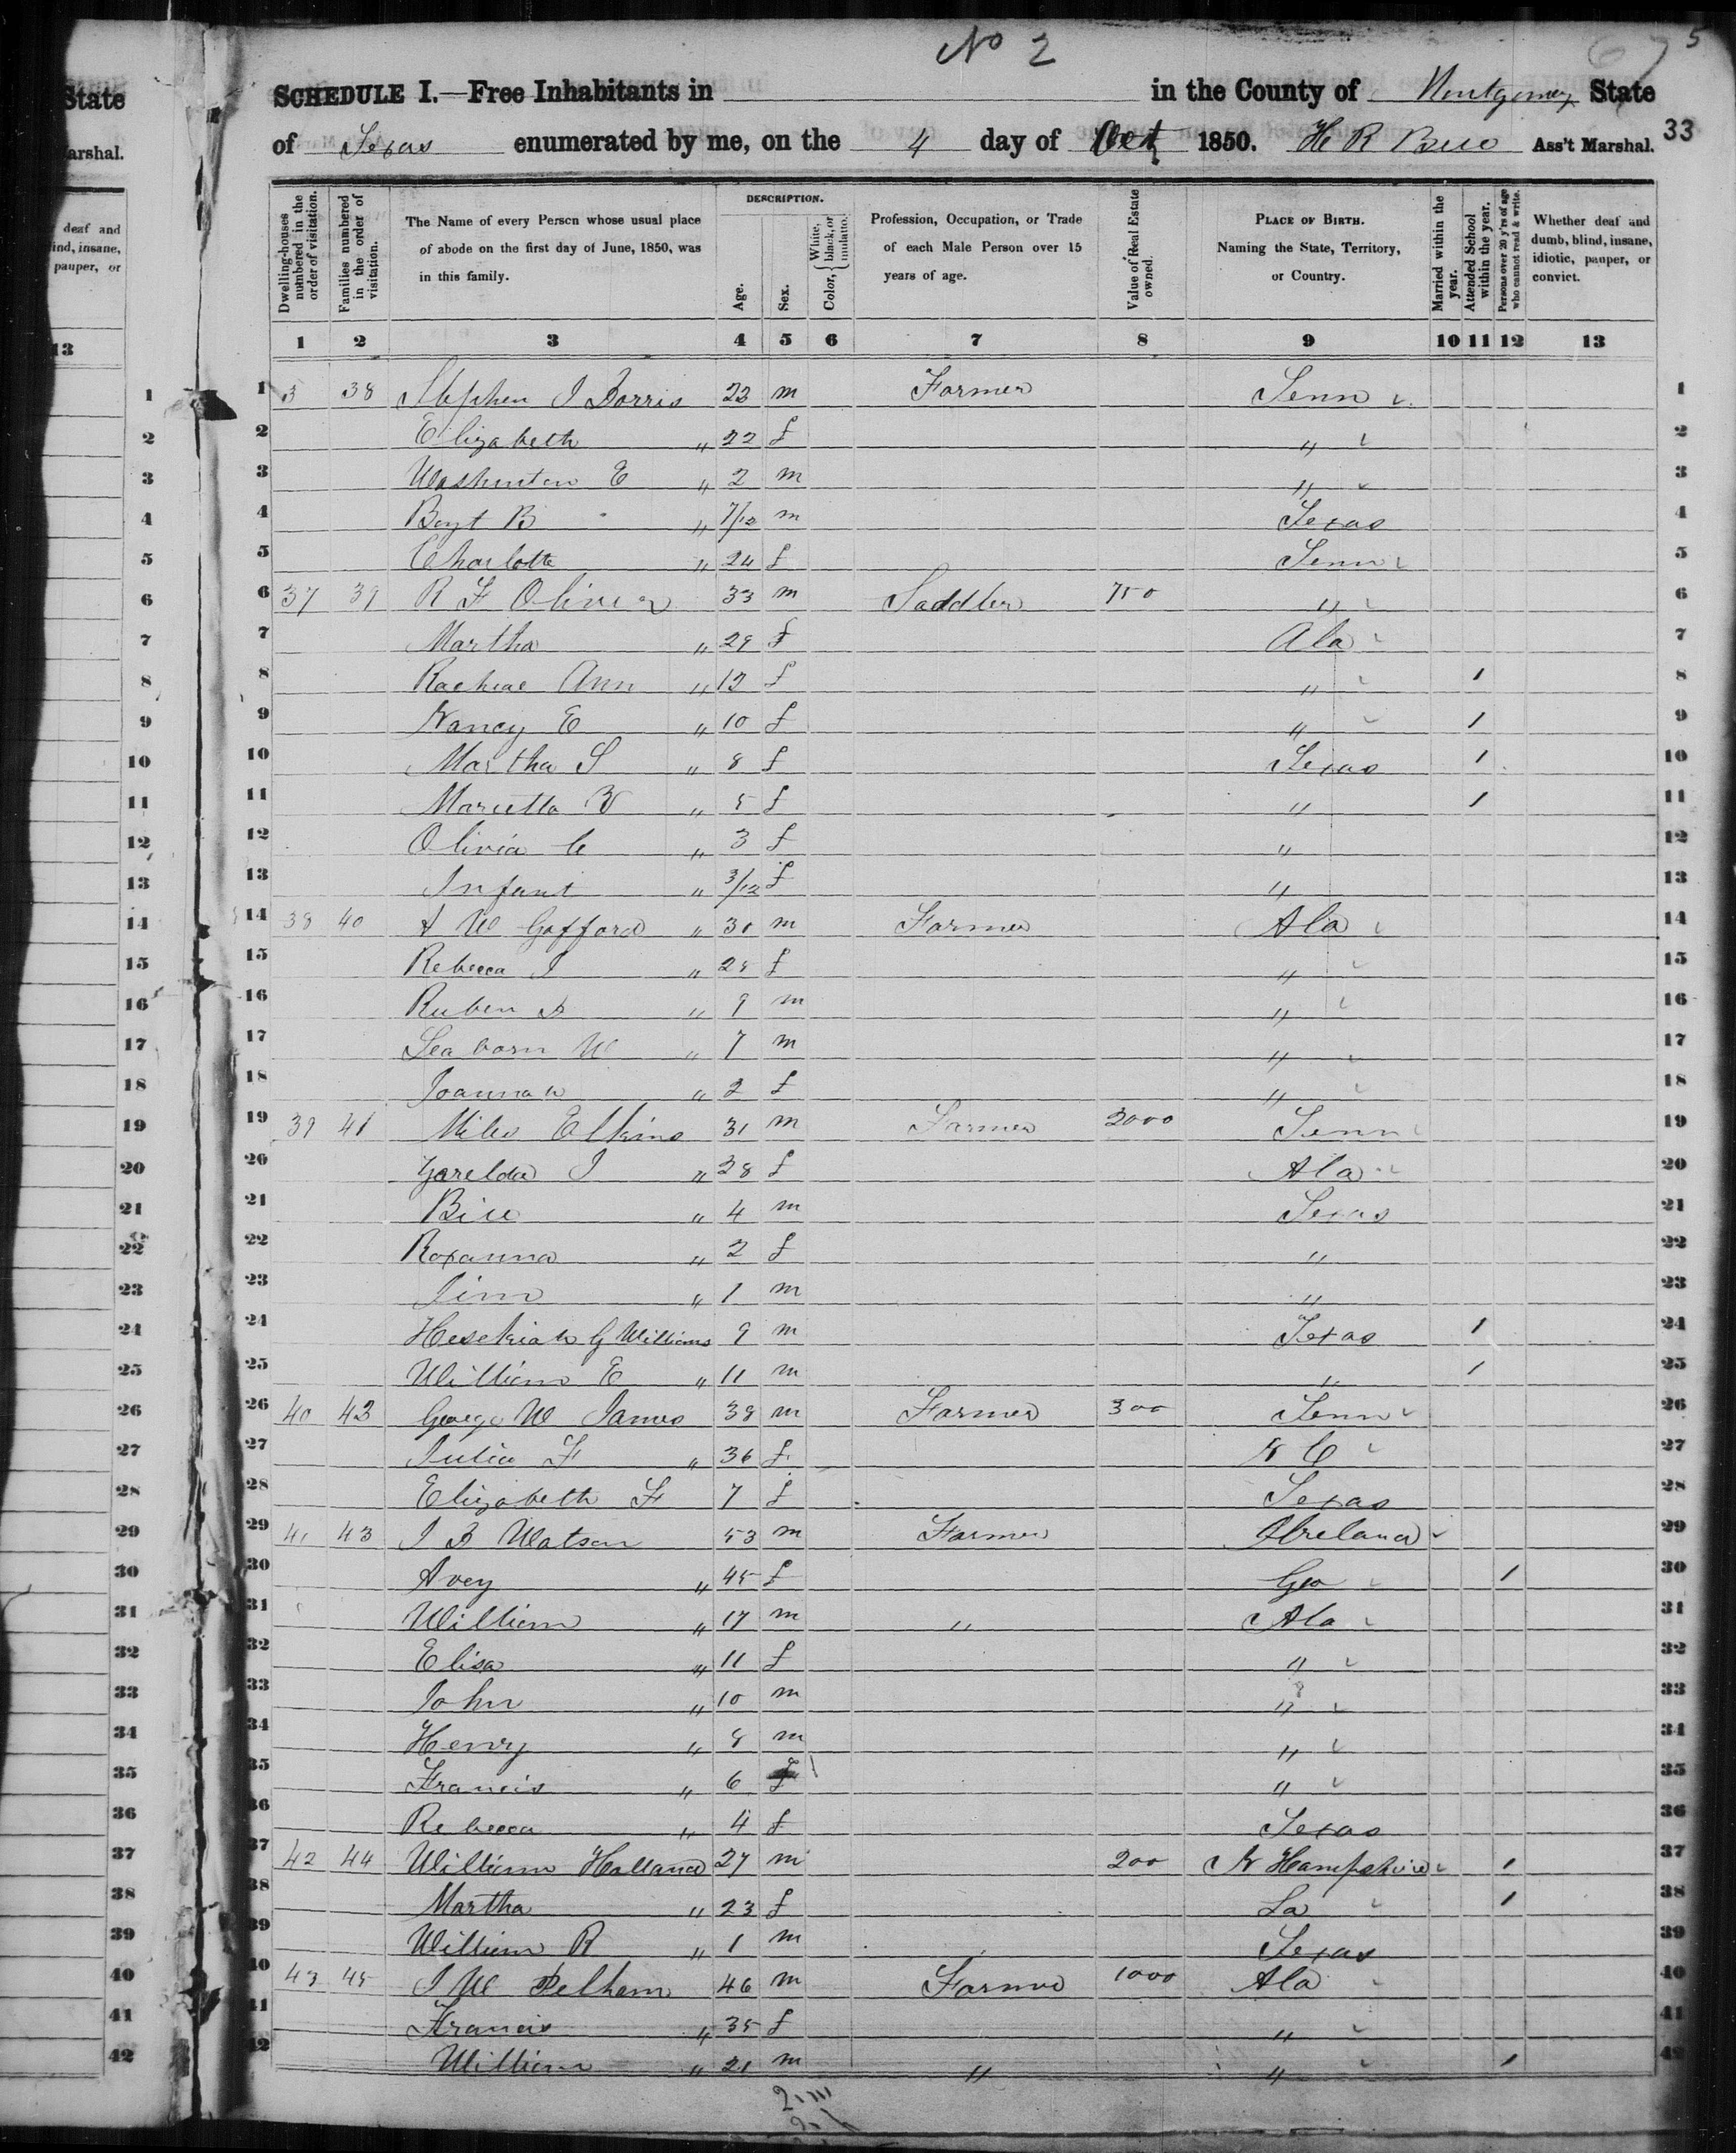 No 2
67 5
33
State
arshal.
deaf and
ind, insane,
pauper, or
13
SCHEDULE I.—Free Inhabitants in in the County of Montgomery State
of Texas enumerated by me, on the 4 day of Oct 1850. H R Ass't Marshal.
Dwelling-houses numbered in the order of visitation.
Families numbered in the order of visitation.
The Name of every Person whose usual place of abode on the first day of June, 1850, was in this family.
DESCRIPTION.
Age.
Sex.
Color, { White, black, or mulatto.
Profession, Occupation, or Trade of each Male Person over 15 years of age.
Value of Real Estate owned.
PLACE OF BIRTH. Naming the State, Territory, or Country.
Married within the year.
Attended School within the year.
Persons over 20 y'rs of age who cannot read & write.
Whether deaf and dumb, blind, insane, idiotic, pauper, or convict.
1 2 3 4 5 6 7 8 9 10 11 12 13
1 3 38 Stephen J Dorris 23 m Farmer Tenn 1
2 Elizabeth " 22 f " 2
3 Washinton E " 2 m " 3
4 B " 7/12 m Texas 4
5 Charlotte " 24 f Tenn 5
6 37 39 R F Oliver 33 m Saddler 750 " 6
7 Martha " 29 f Ala 7
8 Racheal Ann " 12 f " 1 8
9 Nancy E " 10 f " 1 9
10 Martha S " 8 f Texas 1 10
11 Marietta " 5 f " 1 11
12 Olivia C " 3 f " 12
13 Infant " 3/12 f " 13
14 38 40 A W Gafford " 30 m Farmer Ala 14
15 Rebecca J " 28 f " 15
16 Ruben " 9 m " 16
17 Seaborn W " 7 m " 17
18 Joannah " 2 f " 18
19 39 41 Miles Elkins 31 m Farmer 2000 Tenn 19
20 J " 28 f Ala 20
21 " 4 m Texas 21
22 Roxanna " 2 f " 22
23 Jim " 1 m " 23
24 Hesekiah G Williams 9 m Texas 1 24
25 William E " 11 m " 1 25
26 40 42 George W James 38 m Farmer 300 Tenn 26
27 Julia F " 36 f N C 27
28 Elizabeth F 7 f Texas 28
29 41 43 J B Watson 53 m Farmer Ireland 29
30 Avey " 45 f Geo 1 30
31 William " 17 m " Ala 31
32 Elisa " 11 f " 32
33 John " 10 m " 33
34 Henry " 8 m " 34
35 Francis " 6 f " 35
36 Rebecca " 4 f Texas 36
37 42 44 William Holland 27 m 200 N Hampshire 1 37
38 Martha " 23 f La 1 38
39 William R " 1 m Texas 39
40 43 45 J W Pelham 46 m Farmer 1000 Ala 40
41 Francis " 35 f " 41
42 William " 21 m " " 1 42